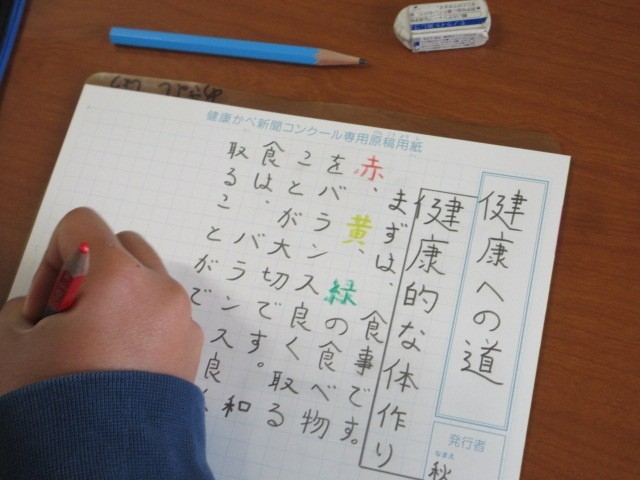 健康かべ新聞コンクール専用原稿用紙
健康への道
発行者
なまえ
秋
健康的な体作り
まずは、食事です。
赤、黄、緑の食べ物
をバランス良く取る
ことが大切です。和
食は、バランス良く
取ることがで